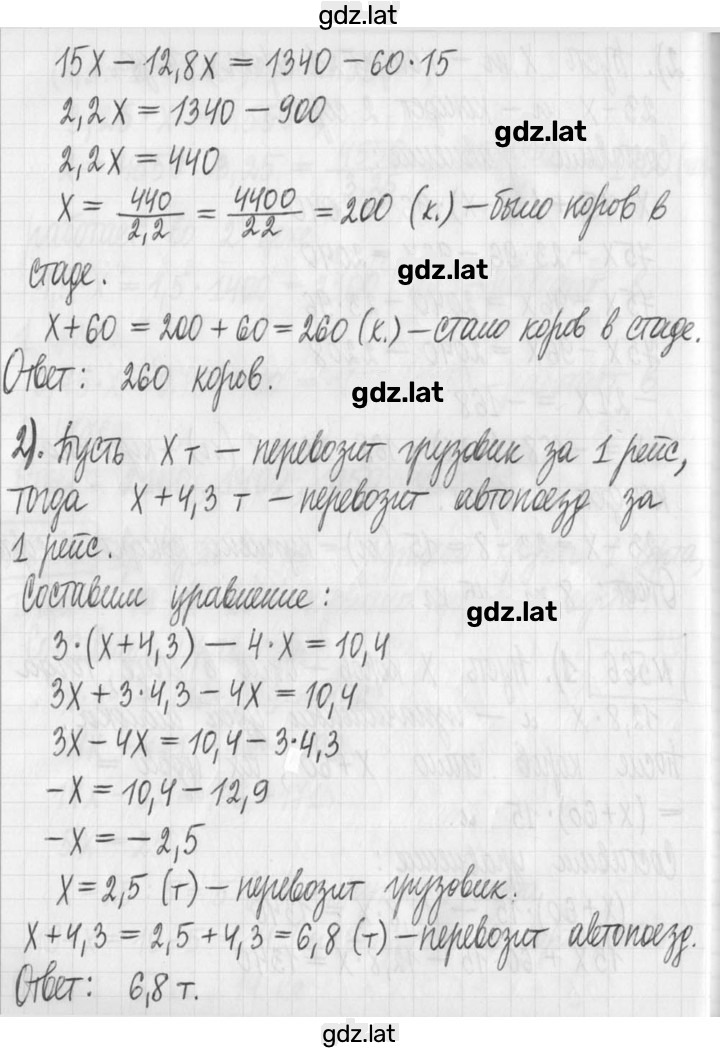 gdz.lat
15x − 12,8x = 1340 − 60·15
2,2x = 1340 − 900
gdz.lat
2,2x = 440
x = 440/2,2 = 4400/22 = 200 (к.) – было коров в
стаде.
gdz.lat
x + 60 = 200 + 60 = 260 (к.) – стало коров в стаде.
Ответ: 260 коров.
gdz.lat
2). Пусть x т – перевозит грузовик за 1 рейс,
тогда x + 4,3 т – перевозит автопоезд за
1 рейс.
Составим уравнение:
gdz.lat
3·(x + 4,3) − 4·x = 10,4
3x + 3·4,3 − 4x = 10,4
3x − 4x = 10,4 − 3·4,3
−x = 10,4 − 12,9
−x = −2,5
x = 2,5 (т) – перевозит грузовик.
x + 4,3 = 2,5 + 4,3 = 6,8 (т) – перевозит автопоезд.
Ответ: 6,8 т.
gdz.lat